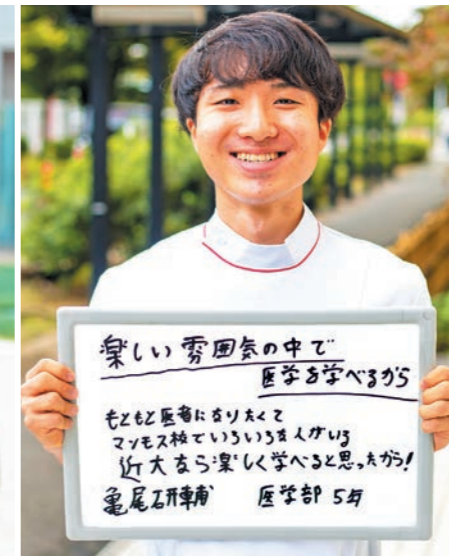 楽しい雰囲気の中で
医学を学べるから
もともと医者になりたくて
マンモス校でいろいろな人がいる
近大なら楽しく学べると思ったから!
亀尾研輔 医学部 5年